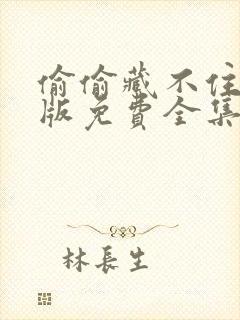 偷偷藏不住
版免費全集
林長生